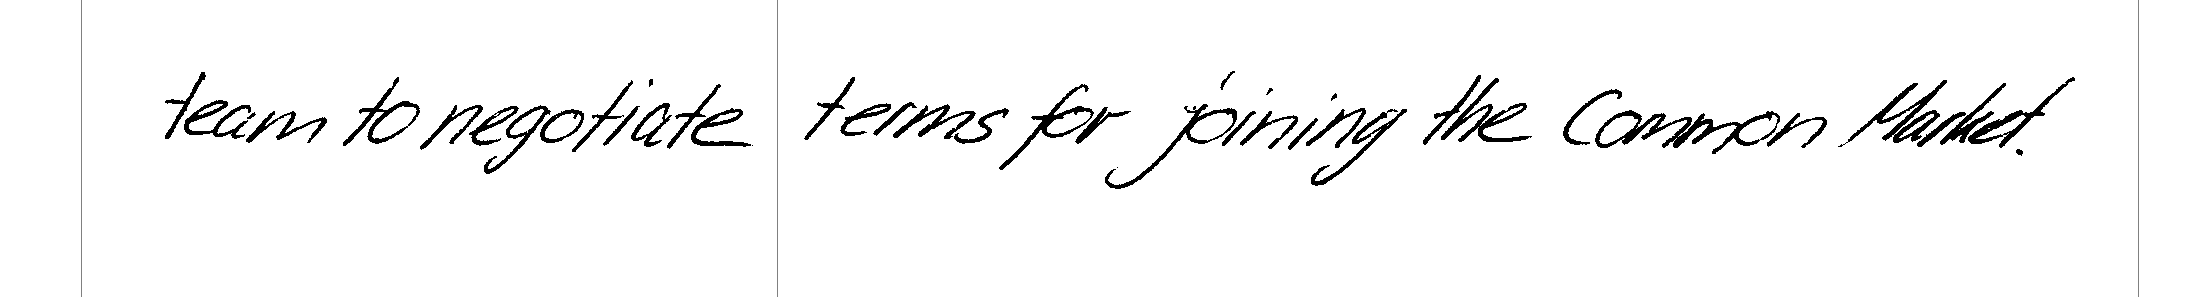 team to negotiate terms for joining the Common Market.